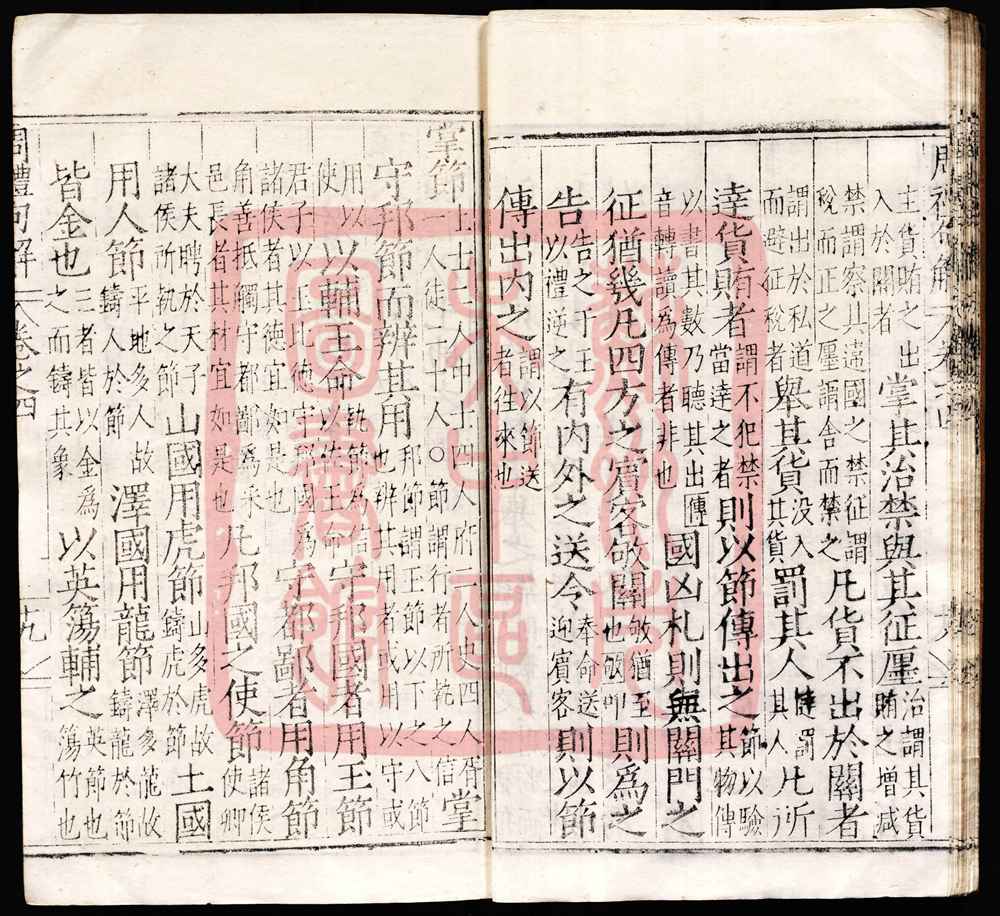 主貨賄之出入於關者掌其治禁與其征廛治謂其貨賄之增減
禁謂察其違國之禁征謂稅而正之廛謂舍而禁之凡貨不出於關者
謂出於私道而避征稅者舉其貨没入其貨罰其人撻罰其人凡所
達貨賄者謂不犯禁當達之者則以節傳出之節以驗其物傳
以書其數乃聽其出傳音轉讀為傳者非也國凶札則無關門之
征猶幾凡四方之賓客敂關敂猶至也敂叩則為之
告告之于王以禮逆之有内外之送令奉命送迎賓客則以節
傳出内之謂以節送者往來也
掌節上士二人中十四人府二人史四人胥二人徒二十人○節謂行者所執之信掌
守邦節而辨其用邦節謂王節以下之八節也辨其用者或用以守或
用以使以輔王命執節為信以佐王命守邦國者用玉節
君子以玉比德守邦國為諸侯者其德宜如是也守都鄙者用角節
角善抵觸守都鄙爲采邑長者其材宜如是也凡邦國之使節諸侯使卿
大夫聘於天子諸侯所執之節山國用虎節山多虎故鑄虎於節土國
用人節平地多人故鑄人於節澤國用龍節澤多龍故鑄龍於節
皆金也三者皆以金為之而鑄其象以英簜輔之英節也簜竹也
周禮句解 卷之四 十九